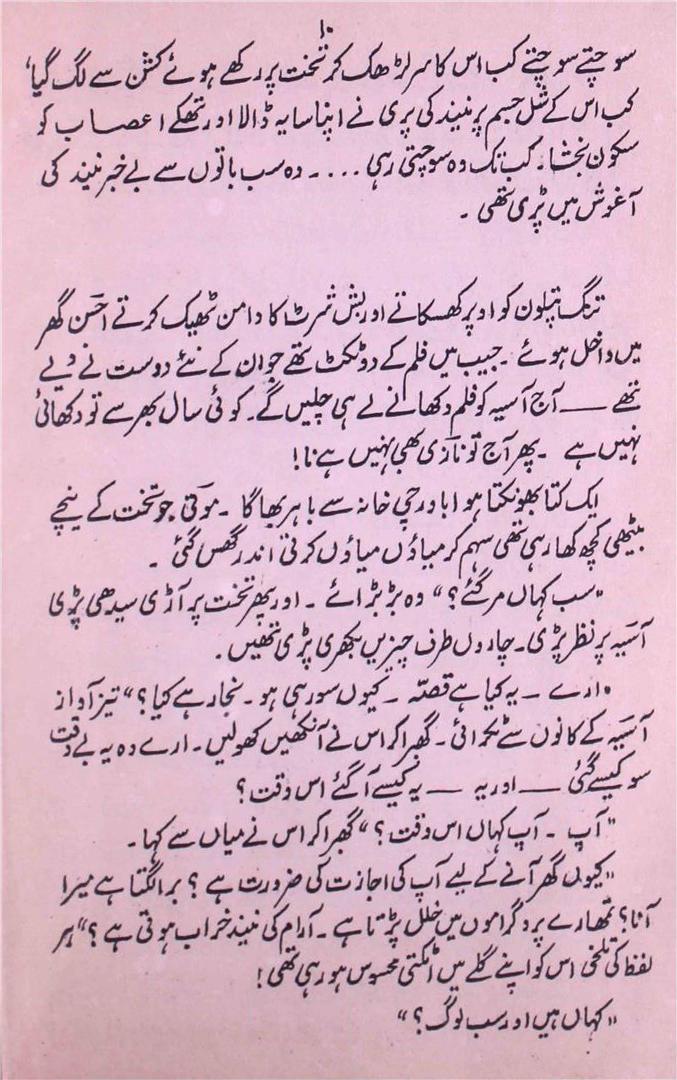 ۱۰
سوچتے سوچتے کب اس کا سر لڑھک کر تخت پر رکھے ہوئے کشن سے لگ گیا،
کب اس کے شل جسم پر نیند کی پری نے اپنا سایہ ڈالا اور تھکے اعصاب کو
سکون بخشا۔ کب تک وہ سوچتی رہی .... ۔ وہ سب باتوں سے بے خبر نیند کی
آغوش میں پڑی تھی ۔
تنگ پتلون کو اوپر کھسکاتے اور بش شرٹ کا دامن ٹھیک کرتے احسن گھر
میں داخل ہوئے ۔ جیب میں فلم کے دو ٹکٹ تھے جو ان کے نئے دوست نے دیے
تھے —— آج آسیہ کو فلم دکھانے لے ہی چلیں گے۔ کوئی سال بھر سے تو دکھائی
نہیں ہے ۔ پھر آج تو نازی بھی نہیں ہے نا!
ایک کتا بھونکتا ہوا باورچی خانہ سے باہر بھاگا ۔ موتی جو تخت کے نیچے
بیٹھی کچھ کھا رہی تھی سہم کر میاؤں میاؤں کرتی اندر گھس گئی ۔
"سب کہاں مر گئے؟" وہ بڑبڑائے ۔ اور پھر تخت پر آڑی سیدھی پڑی
آسیہ پر نظر پڑی۔ چاروں طرف چیزیں بکھری پڑی تھیں۔
"ارے — یہ کیا ہے قصّہ ۔ کیوں سو رہی ہو ۔ بخار ہے کیا؟" تیز آواز
آسیہ کے کانوں سے ٹکرائی ۔ گھبرا کر اس نے آنکھیں کھولیں ۔ ارے وہ یہ بے وقت
سو کیسے گئی —— اور یہ —— یہ کیسے آ گئے اس وقت؟
"آپ ۔ آپ کہاں اس وقت؟" گھبرا کر اس نے میاں سے کہا۔
"کیوں گھر آنے کے لیے آپ کی اجازت کی ضرورت ہے؟ برا لگتا ہے میرا
آنا؟ تمھارے پروگراموں میں خلل پڑتا ہے ۔ آرام کی نیند خراب ہوتی ہے؟" ہر
لفظ کی تلخی اس کو اپنے گلے میں اٹکتی محسوس ہو رہی تھی!
"کہاں ہیں اور سب لوگ؟"